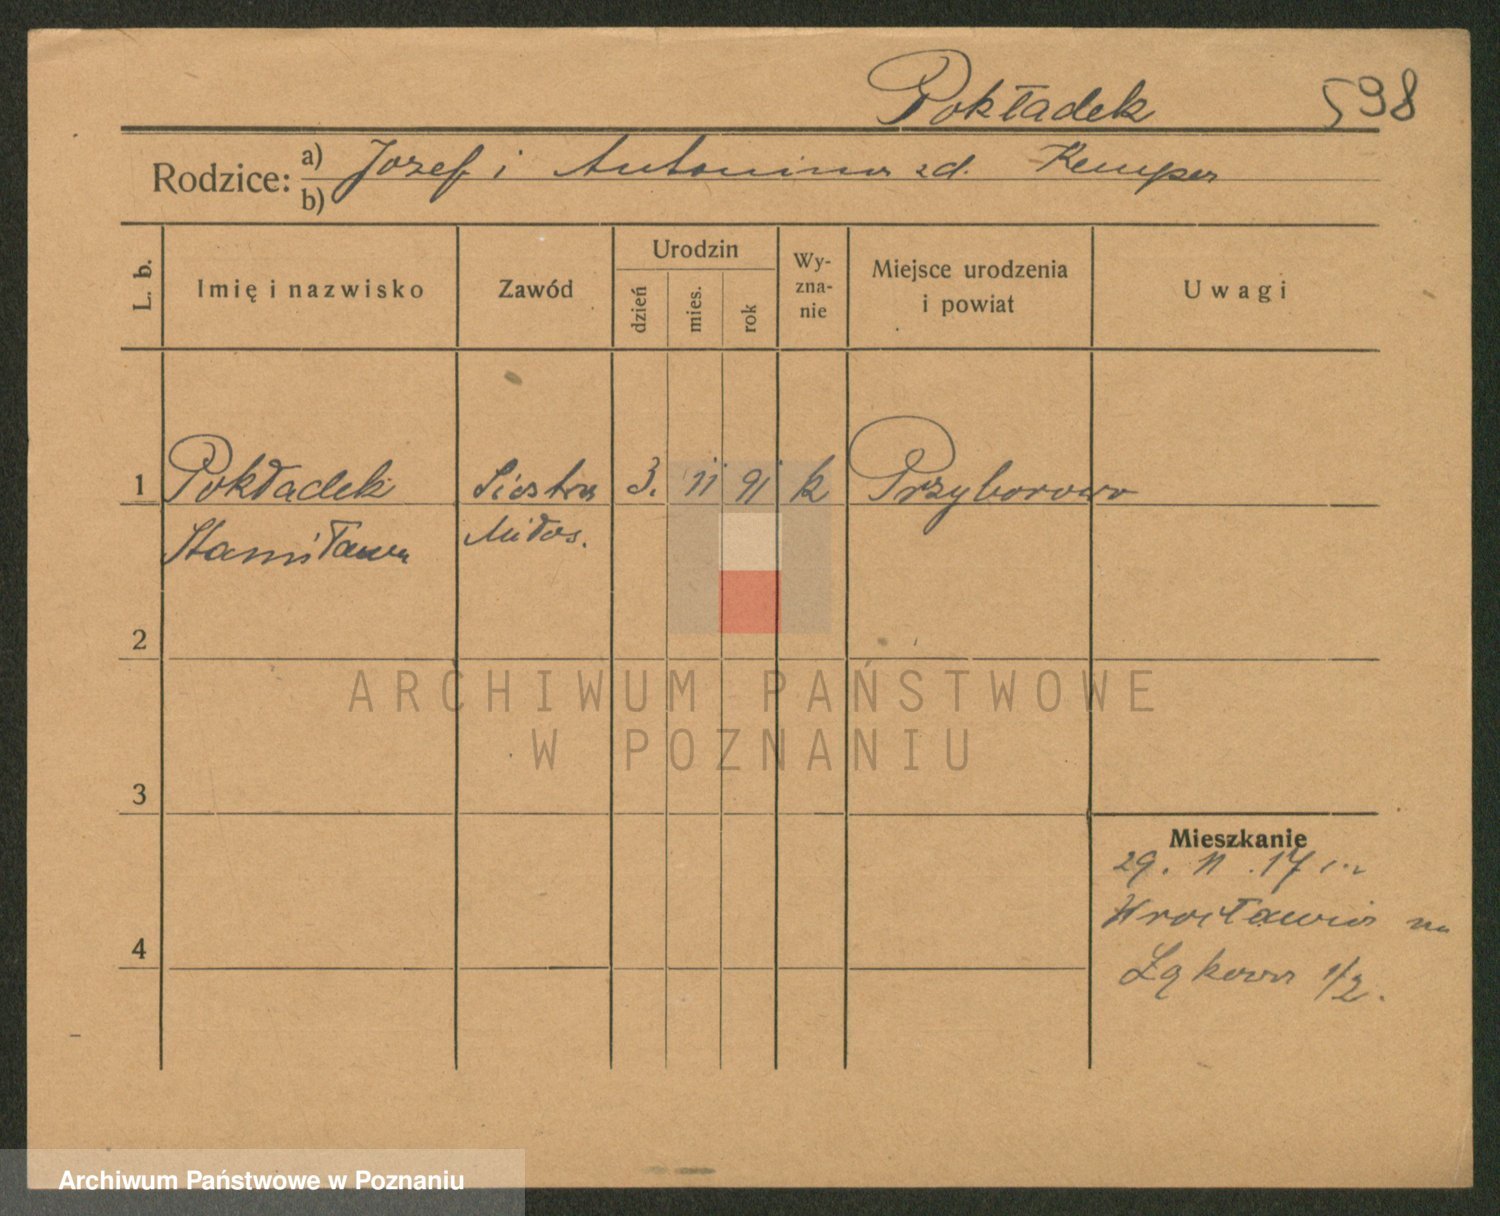 Pokładek 598
Rodzice: a) Jozef i Antonina zd. Kempa
b)
L. b. Imię i nazwisko Zawód Urodzin dzień mies. rok Wy-zna-nie Miejsce urodzenia i powiat Uwagi
1 Pokładek Siostra 3. 11 91 k Przyborowo
Stanisława Miłos.
2
3
Mieszkanie
29. 11. 17
Wrocławia na
4
Łąkowa 1/2.
ARCHIWUM PAŃSTWOWE
W POZNANIU
Archiwum Państwowe w Poznaniu